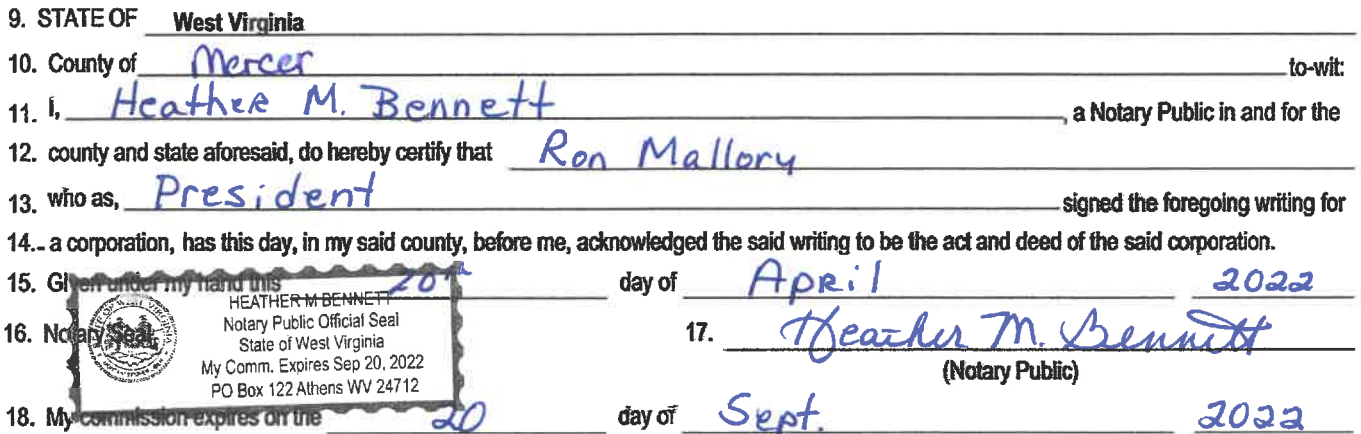 9. STATE OF West Virginia
10. County of Mercer to-wit:
11. I, Heather M. Bennett, a Notary Public in and for the
12. county and state aforesaid, do hereby certify that Ron Mallory
13. who as, President signed the foregoing writing for
14. a corporation, has this day, in my said county, before me, acknowledged the said writing to be the act and deed of the said corporation.
15. Given under my hand this 20th day of April 2022
HEATHER M BENNETT
Notary Public Official Seal
State of West Virginia
My Comm. Expires Sep 20, 2022
PO Box 122 Athens WV 24712
16. Notary Seal 17. Heather M. Bennett
(Notary Public)
18. My commission expires on the 20 day of Sept. 2022